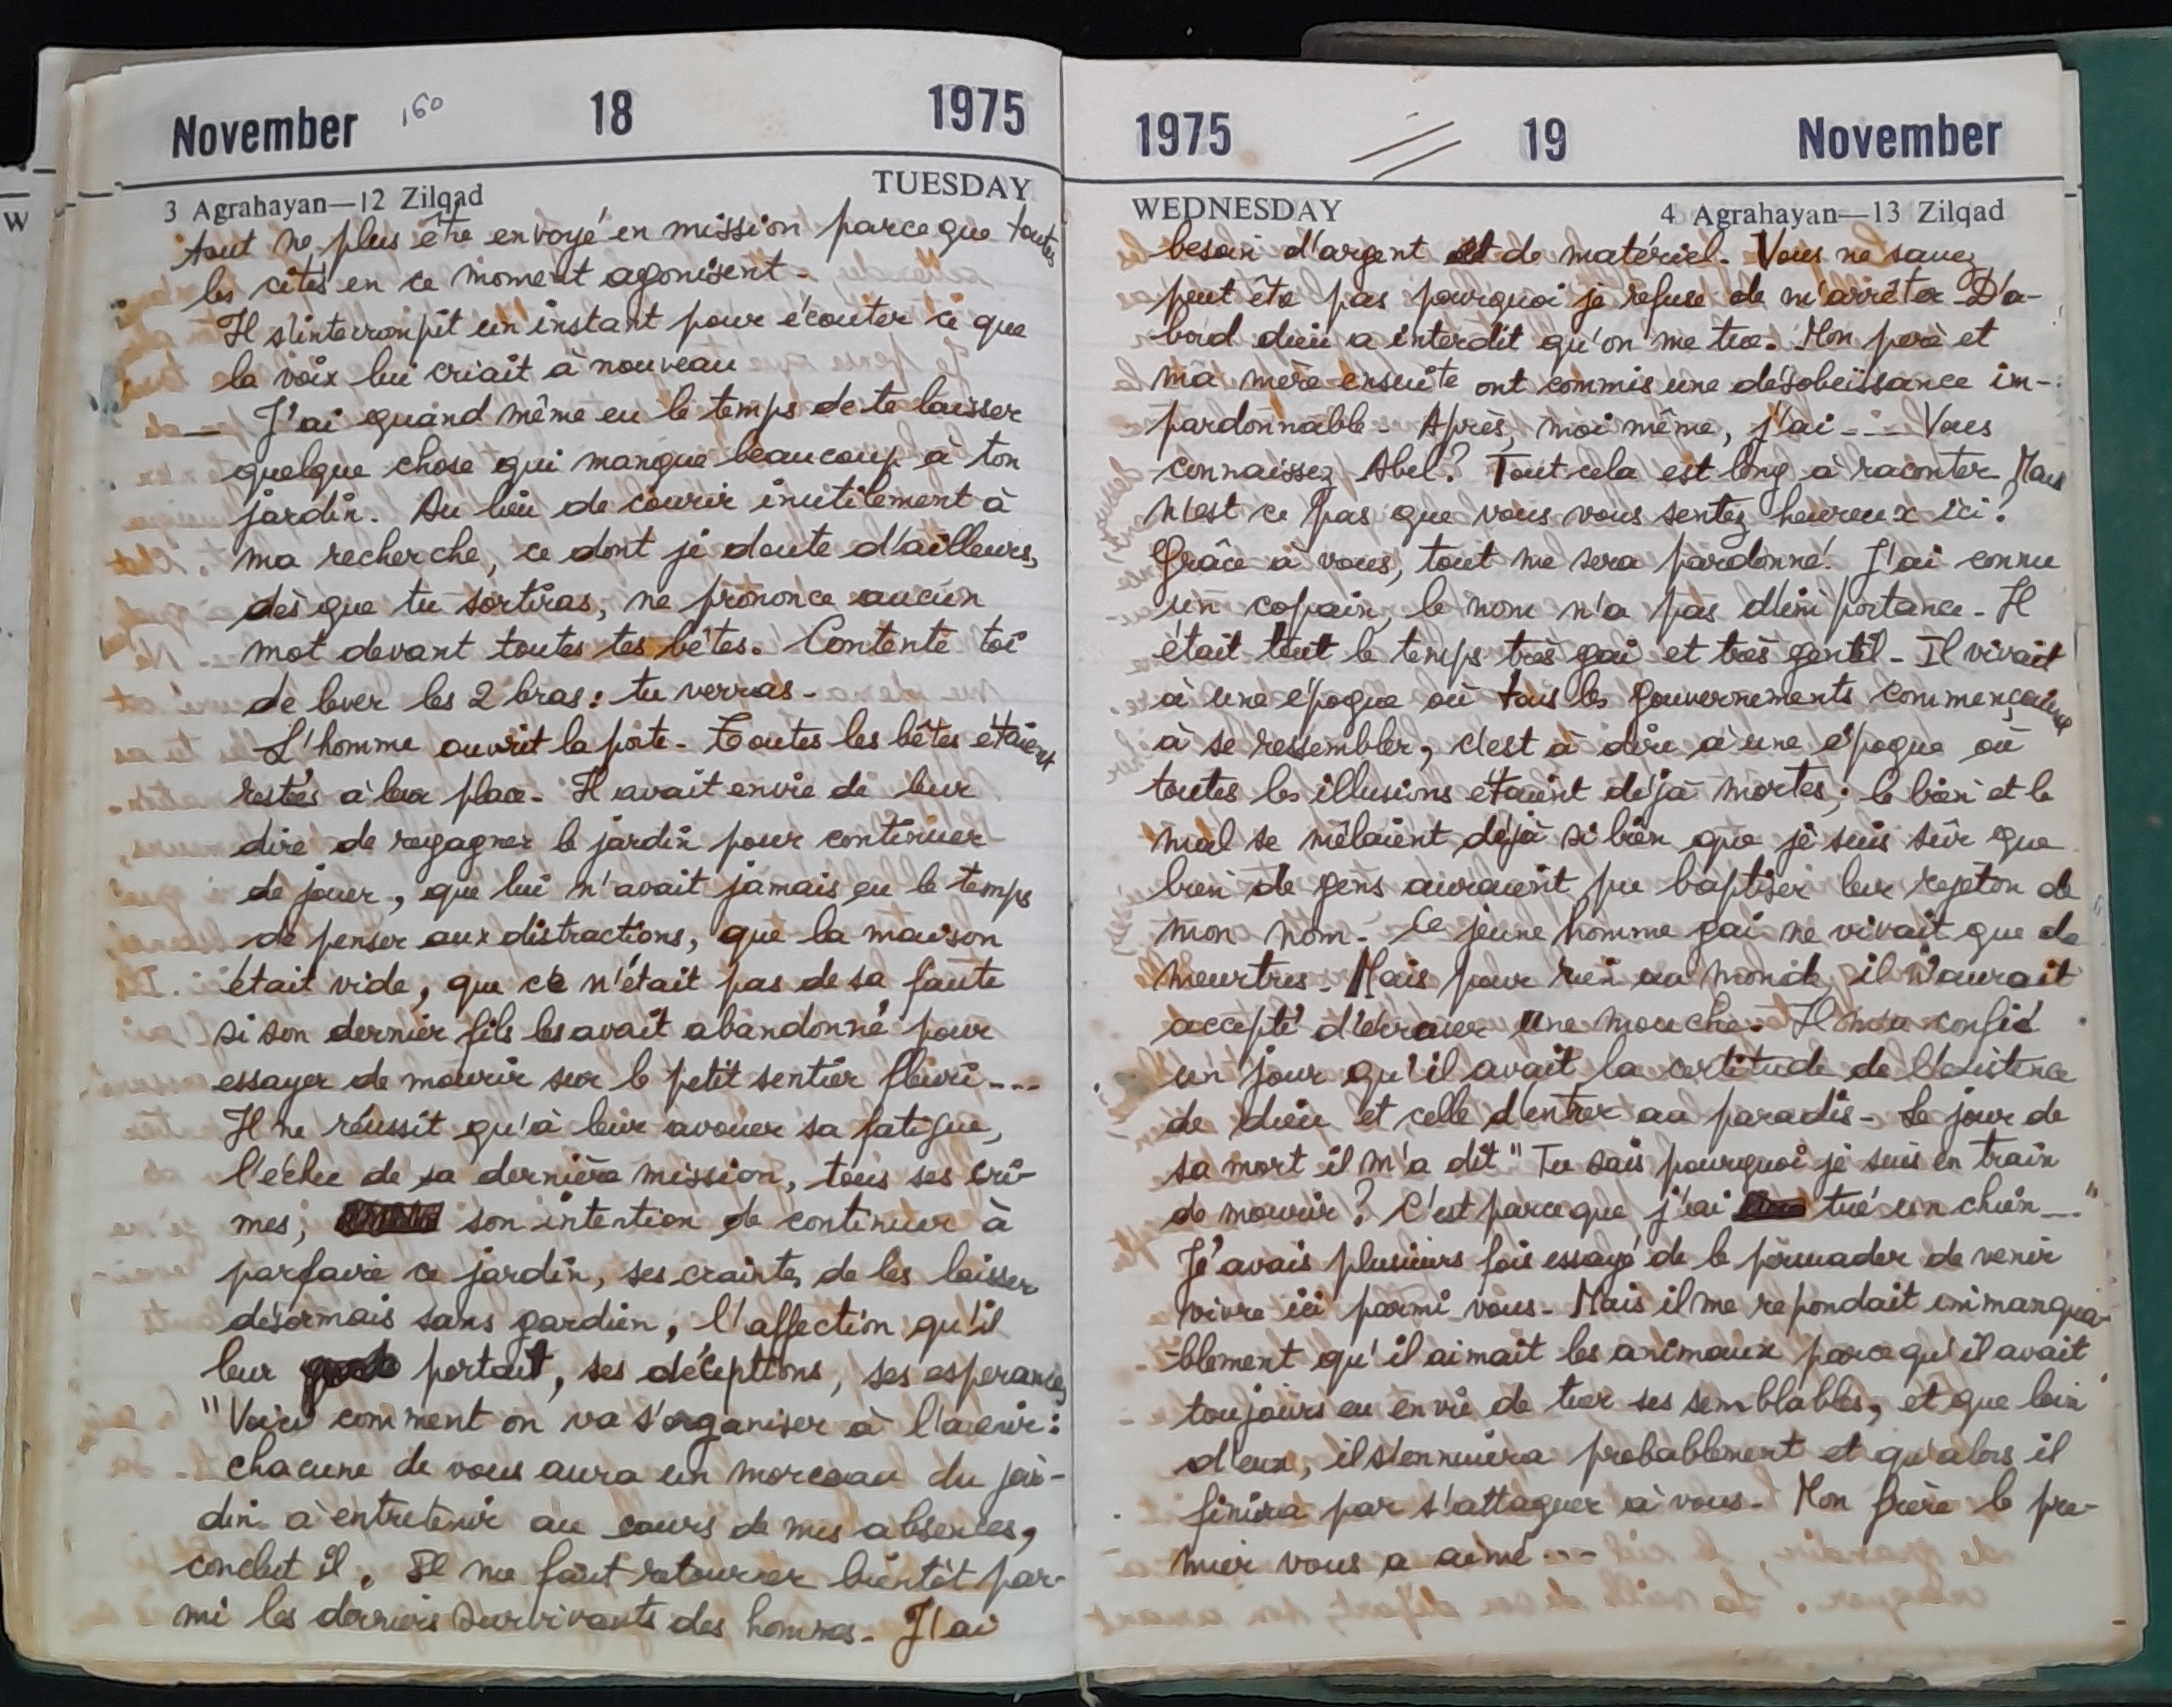 November 160 18 1975
TUESDAY
3 Agrahayan—12 Zilqad
tout ne plus être envoyé en mission parce que toutes
les cités en ce moment agonisent -
Il s'interrompit un instant pour écouter ce que
la voix lui criait à nouveau
— J'ai quand même eu le temps de te laisser
quelque chose qui manque beaucoup à ton
jardin. Au lieu de courir inutilement à
ma recherche, ce dont je doute d'ailleurs,
dès que tu sortiras, ne prononce aucun
mot devant toutes tes bêtes. Contente toi
de lever les 2 bras : tu verras -
L'homme ouvrit la porte - Toutes les bêtes étaient
restées à leur place - Il avait envie de leur
dire de regagner le jardin pour continuer
de jouer, que lui n'avait jamais eu le temps
de penser aux distractions, que la maison
était vide, que ce n'était pas de sa faute
si son dernier fils les avait abandonné pour
essayer de mourir sur le petit sentier fleuri ---
Il ne réussit qu'à leur avouer sa fatigue,
l'échec de sa dernière mission, tous ses cri-
mes, son intention de continuer à
parfaire ce jardin, ses craintes de les laisser
désormais sans gardien, l'affection qu'il
leur portait, ses déceptions, ses esperances
"Voici comment on va s'organiser à l'avenir :
chacune de vous aura un morceau du jar-
din à entretenir au cours de mes absences,
conclut il. Il me faut retourner bientôt par-
mi les derniers survivants des hommes - J'ai
1975 19 November
WEDNESDAY 4 Agrahayan—13 Zilqad
besoin d'argent et de matériel - Vous ne savez
peut être pas pourquoi je refuse de m'arrêter - D'a-
bord dieu a interdit qu'on me tue. Mon père et
ma mère ensuite ont commis une désobeïssance im-
pardonnable - Après, moi même, j'ai --- Vous
connaissez Abel ? Tout cela est long à raconter Mais
n'est ce pas que vous vous sentez heureux ici ?
Grâce à vous, tout me sera pardonné ! J'ai connu
un copain, le nom n'a pas d'importance - Il
était tout le temps très gai et très gentil - Il vivait
à une époque où tous les gouvernements commençaient
à se ressembler, c'est à dire à une époque où
toutes les illusions étaient déjà mortes ; le bien et le
mal se mêlaient déjà si bien que je suis sûr que
bien de gens auraient pu baptiser leur rejeton de
mon nom - Ce jeune homme gai ne vivait que de
meurtres - Mais pour rien au monde il n'aurait
accepté d'écraser une mouche. Il m'a confié
un jour qu'il avait la certitude de l'existence
de dieu et celle d'entrer au paradis - Le jour de
sa mort il m'a dit " Tu sais pourquoi je suis en train
de mourir ? C'est parce que j'ai tué un chien --- "
J'avais plusieurs fois essayé de le persuader de venir
vivre ici parmi vous - Mais il me repondait immanqua-
-blement qu'il aimait les animaux parce qu'il avait
toujours eu envie de tuer ses semblables, et que loin
d'eux, il s'ennuiera probablement et qu'alors il
finira par s'attaquer à vous - Mon frère le pre-
mier vous a aimé ---